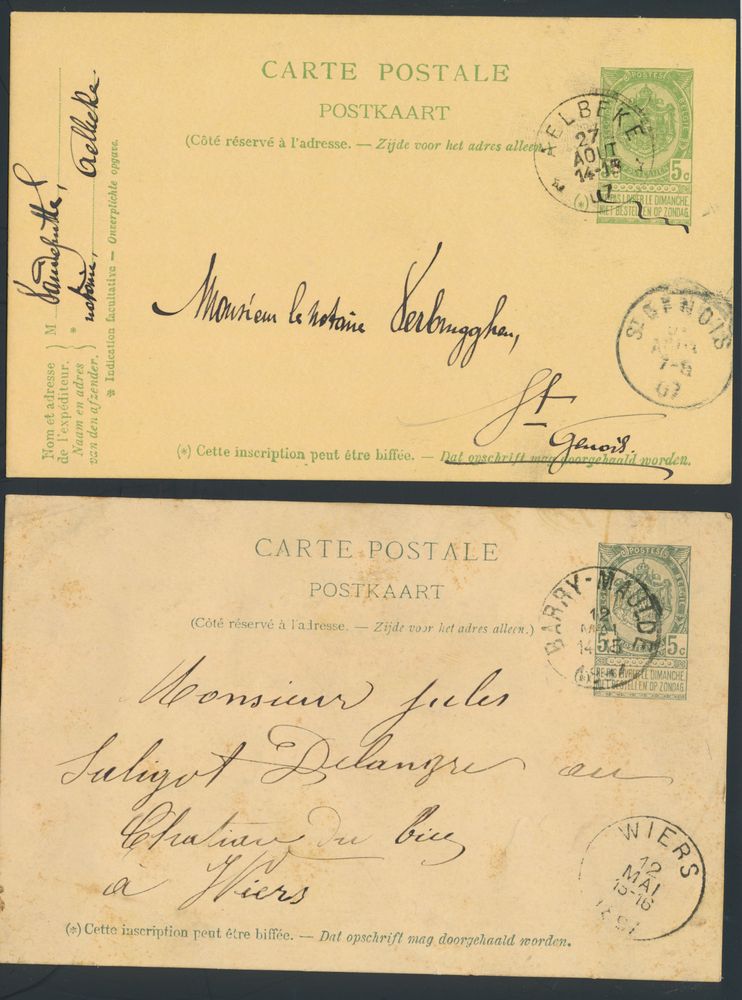 CARTE POSTALE
POSTKAART
(Côté réservé à l'adresse. — Zijde voor het adres alleen
POSTES BELGIQUE
5c
5c
NE PAS LIVRER LE DIMANCHE
NIET BESTELLEN OP ZONDAG
(*)
AELBEKE
27
AOUT
14-15
07
Nom et adresse de l'expéditeur.
Naam en adres van den afzender.
M
*
Vandeputte,
notaire, Aelbeke
* Indication facultative — Onverplichte opgave.
Monsieur le notaire Verbrugghen,
St
Genois.
ST GENOIS
AOUT
7-8
07
(*) Cette inscription peut être biffée. — Dat opschrift mag doorgehaald worden.
CARTE POSTALE
POSTKAART
(Côté réservé à l'adresse. — Zijde voor het adres alleen.)
POSTES
5c
5c
NE PAS LIVRER LE DIMANCHE
NIET BESTELLEN OP ZONDAG
(*)
BARRY-MAULDE
12
MAI
14-15
Monsieur Jules
Saligot Delangre au
du
à Wiers
WIERS
12
MAI
15-16
(*) Cette inscription peut être biffée. — Dat opschrift mag doorgehaald worden.